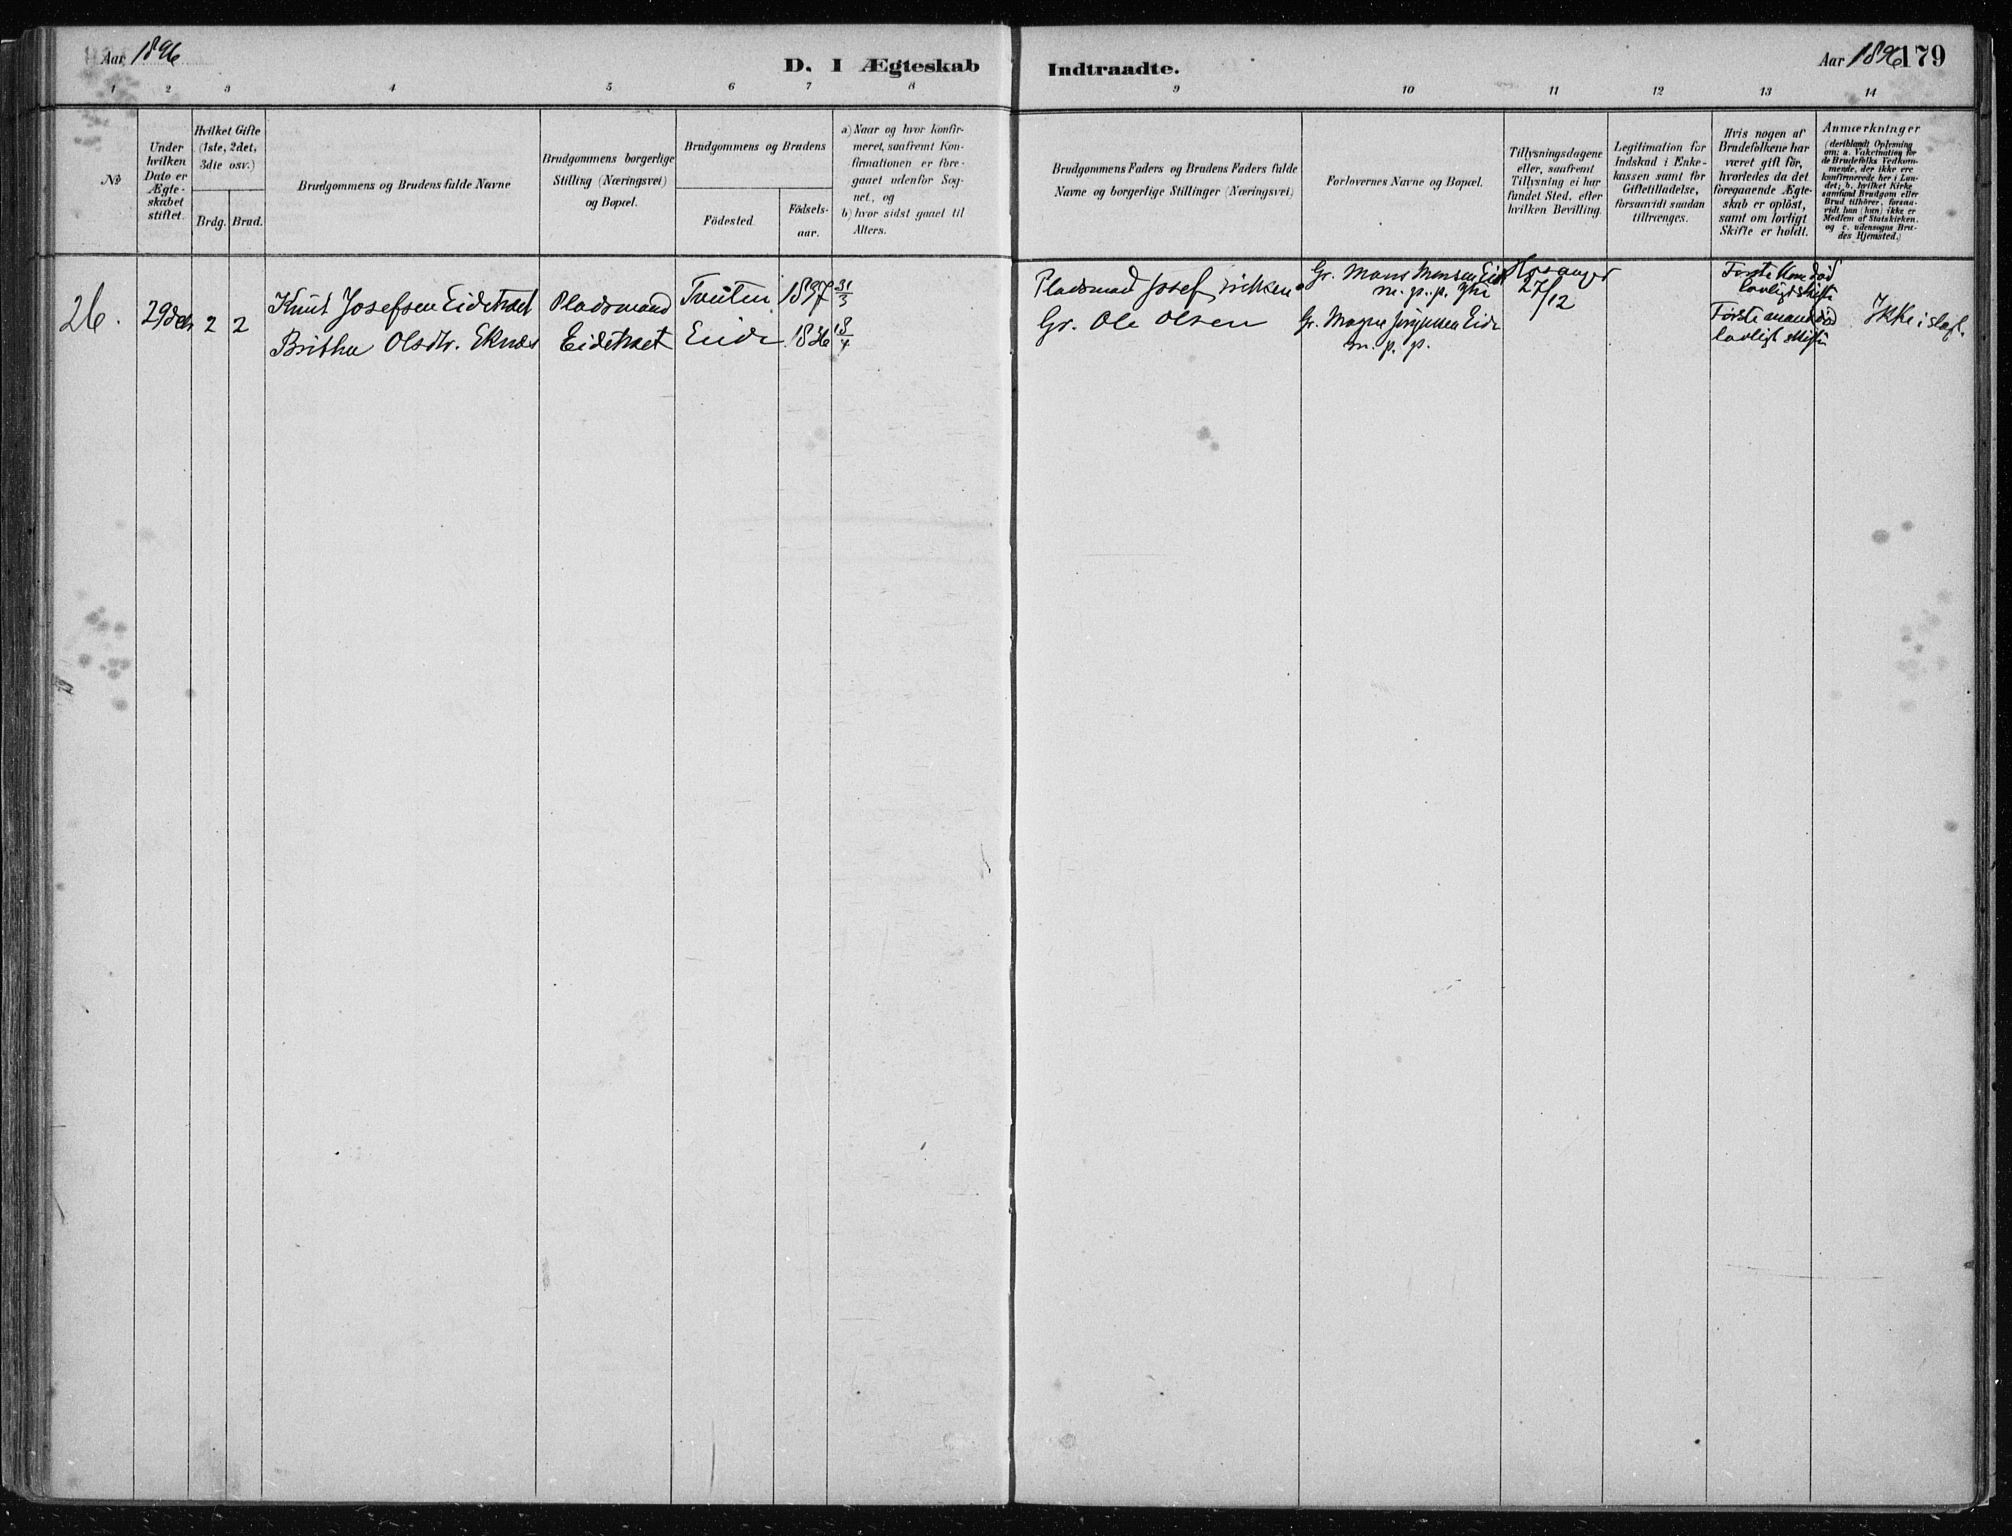 Aar 1896
D. I Ægteskab
Indtraadte.
Aar 1896 179
1 2 3 4 5 6 7 8 9 10 11 12 13 14
No
Under
hvilken
Dato er
Ægte-
skabet
stiftet.
Hvilket Gifte
(1ste, 2det,
3die osv.)
Brdg. Brud.
Brudgommens og Brudens fulde Navne
Brudgommens borgerlige
Stilling (Næringsvei)
og Bopæl.
Brudgommens og Brudens
Födested.
Födsels-
aar.
a) Naar og hvor Konfir-
meret, saafremt Kon-
firmationen er fore-
gaaet udenfor Sog-
net, og
b) hvor sidst gaaet til
Alters.
Brudgommens Faders og Brudens Faders fulde
Navne og borgerlige Stillinger (Næringsvei)
Forlovernes Navne og Bopæl.
Tillysningsdagene
eller, saafremt
Tillysning ei har
fundet Sted, efter
hvilken Bevilling.
Legitimation for
Indskud i Enke-
kassen samt for
Giftetilladelse,
forsaavidt saadan
tiltrænges.
Hvis nogen af
Brudefolkene har
været gift för,
hvorledes da det
foregaaende Ægte-
skab er oplöst,
samt om lovligt
Skifte er holdt.
Anmærkninger
(deriblandt Oplysning
om: a. Vakcination for
de Brudefolks Vedkom-
mende, der ikke ere
konfirmerede her i Lan-
det; b. hvilket Kirke-
samfund Brudgom eller
Brud tilhörer, forsaa-
vidt han (hun) ikke er
Medlem af Statskirken,
og c. udensogns Bru-
des Hjemsted.)
26. 29 dec 2 2
Knut Josefsen Eidetræt Pladsmand 1837 31/3
Britha Olsdtr. Eknes Eidetræt Eide 1836 13/4
Pladsmand Josef
Gr. Ole Olsen
Gr. Mons Monsen Eide
m. p. p.
Gr. Magne Eide
m. p. p.
27/12
Første Kone död
lovligt skifte
Første mand död
lovligt skifte
Ikke i slægt.